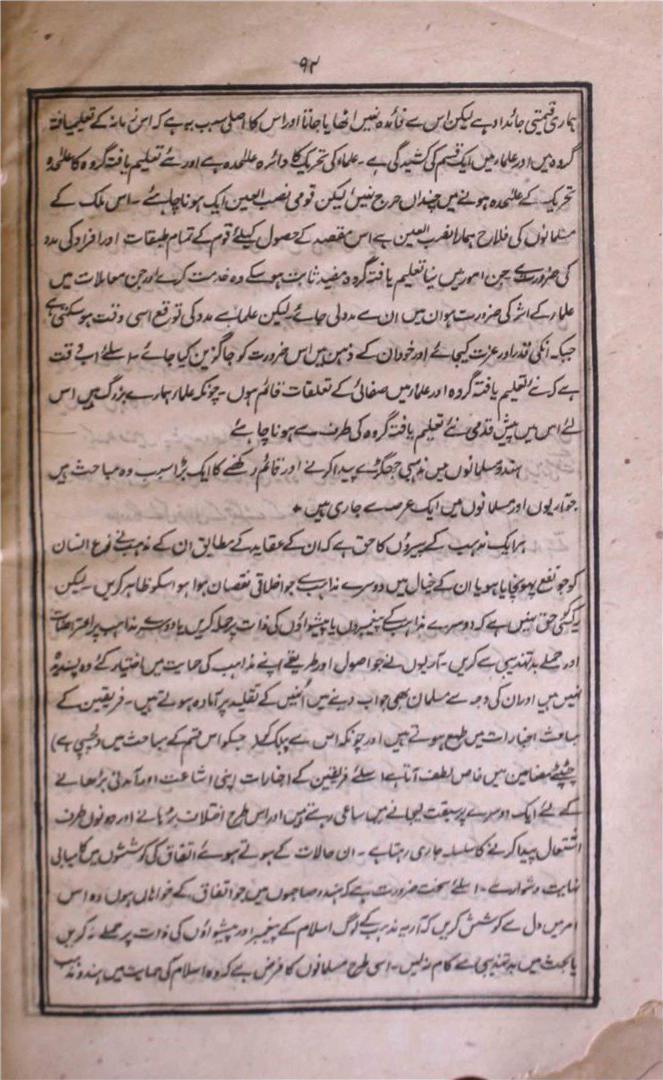 ۹۲
ہماری قیمتی جائداد ہے لیکن اس سے فائدہ نہیں اٹھایا جاتا اور اس کا اصلی سبب یہ ہے کہ اس زمانہ کے تعلیم یافتہ
گروہ میں اور علماء میں ایک قسم کی کشیدگی ہے۔ علماء کی تحریک کا دائرہ علٰحدہ ہے اور نئے تعلیم یافتہ گروہ کا علٰحدہ و
تحریک کے علٰحدہ ہونے میں چنداں حرج نہیں لیکن قومی نصب العین ایک ہونا چاہئے۔ اس ملک کے
مسلمانوں کی فلاح ہمارا نصب العین ہے اس مقصد کے حصول کیلئے قوم کے تمام طبقات اور افراد کی مدد
کی ضرورت ہے جن امور میں نیا تعلیم یافتہ گروہ مفید ثابت ہو سکے وہ خدمت کرے اور جن معاملات میں
علماء کے اثر کی ضرورت ہو ان میں ان سے مدد لی جائے لیکن علماء سے مدد کی توقع اسی وقت ہو سکتی ہے
جبکہ انکی قدر اور عزت کیجائے اور خود ان کے ذہن میں اس ضرورت کو جاگزین کیا جائے۔ اسلئے اب وقت
ہے کہ نئے تعلیم یافتہ گروہ اور علماء میں صفائی کے تعلقات قائم ہوں۔ چونکہ علماء ہمارے بزرگ ہیں اس
لئے اس میں پیش قدمی نئے تعلیم یافتہ گروہ کی طرف سے ہونا چاہئے
ہندو مسلمانوں میں مذہبی جھگڑے پیدا کرنے اور قائم رکھنے کا ایک بڑا سبب وہ مباحث ہیں
جو آریوں اور مسلمانوں میں ایک عرصہ سے جاری ہیں ٭
ہر ایک مذہب کے پیروں کا حق ہے کہ ان کے عقاید کے مطابق ان کے مذہب نے نوع انسان
کو جو نفع پہونچایا ہو یا ان کے خیال میں دوسرے مذاہب سے جو اخلاقی نقصان ہوا ہو اسکو ظاہر کریں۔ لیکن
یہ کسی حق نہیں ہے کہ دوسرے مذاہب کے پیغمبروں یا پیشواؤں کی ذات پر حملہ کریں یا دوسرے مذاہب پر اعتراضات
اور حملے بدتہذیبی سے کریں۔ آریوں نے جو اصول اور طریقے اپنے مذاہب کی حمایت میں اختیار کئے وہ پسندیدہ
نہیں ہیں اور ان کی وجہ سے مسلمان بھی جواب دینے میں اُنہیں کے تقلید پر آمادہ ہوتے ہیں۔ فریقین کے
مباحث اخبارات میں طبع ہوتے ہیں اور چونکہ اس سے پبلک کو (جبکہ اس قسم کے مباحث میں دلچسپی ہے)
چٹپٹے مضامین میں خاص لطف آتا ہے اسلئے فریقین کے اخبارات اپنی اشاعت اور آمدنی بڑھانے
کے لئے ایک دوسرے پر سبقت لیجانے میں ساعی رہتے ہیں اور اس طرح اختلاف بڑہانے اور دونوں طرف
اشتعال پیدا کرنے کا سلسلہ جاری رہتا ہے۔ ان حالات کے ہوتے ہوئے اتفاق کی کوششوں میں کامیابی
نہایت دشوار ہے۔ اسلئے سخت ضرورت ہے کہ ہندو صاحبوں میں جو اتفاق کے خواہاں ہوں وہ اس
امر میں دل سے کوشش کریں کہ آریہ مذہب کے لوگ اسلام کے پیغمبر اور پیشواؤں کی ذات پر حملے نہ کریں
یا بحث میں بدتہذیبی سے کام نہ لیں۔ اسی طرح مسلمانوں کا فرض ہے کہ وہ اسلام کی حمایت میں ہندو مذہب